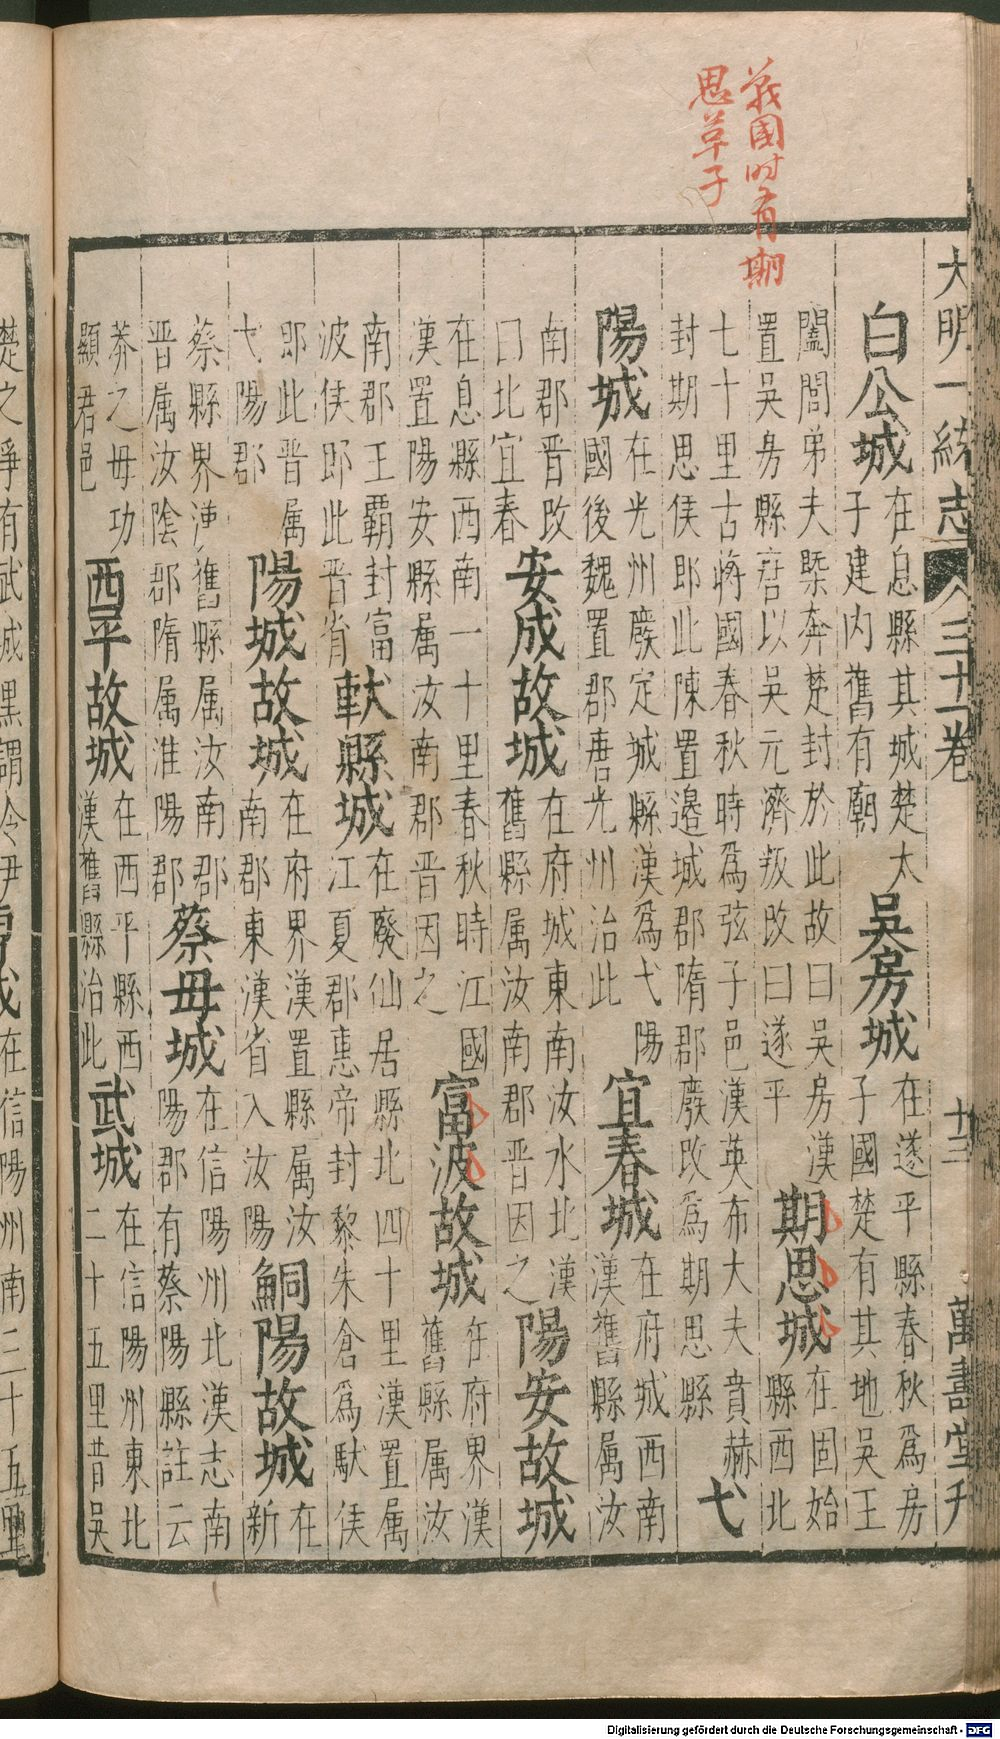 戰國时有期
思草子
大明一統志 三十一卷 十三 萬壽堂刋
白公城
在息縣其城楚太
子建内舊有廟
吳房城
在遂平縣春秋爲房
子國楚有其地吳王
闔閭弟夫㮣奔楚封於此故曰吳房漢
置吳房縣唐以吳元濟叛改曰遂平
期思城
在固始
縣西北
七十里古蔣國春秋時爲弦子邑漢英布大夫賁赫
封期思侯即此陳置邊城郡隋郡廢改爲期思縣
弋
陽城
在光州廢定城縣漢爲弋陽
國後魏置郡唐光州治此
宜春城
在府城西南
漢舊縣属汝
南郡晋改
曰北宜春
安成故城
在府城東南汝水北漢
舊縣属汝南郡晋因之
陽安故城
在息縣西南一十里春秋時江國
漢置陽安縣属汝南郡晋因之
富波故城
在府界漢
舊縣属汝
南郡王霸封富
波侯即此晋省
軑縣城
在廢仙居縣北四十里漢置属
江夏郡惠帝封黎朱倉爲軑侯
即此晋属
弋陽郡
陽城故城
在府界漢置縣属汝
南郡東漢省入汝陽
鮦陽故城
在
新
蔡縣界漢舊縣属汝南郡
晋属汝陰郡隋属淮陽郡
蔡毋城
在信陽州北漢志南
陽郡有蔡陽縣註云
莽之毋功
顯君邑
西平故城
在西平縣西
漢舊縣治此
武城
在信陽州東北
二十五里昔吳
楚之爭有武城黑謂令伊
在信陽州南三十五里
Digitalisierung gefördert durch die Deutsche Forschungsgemeinschaft - DFG